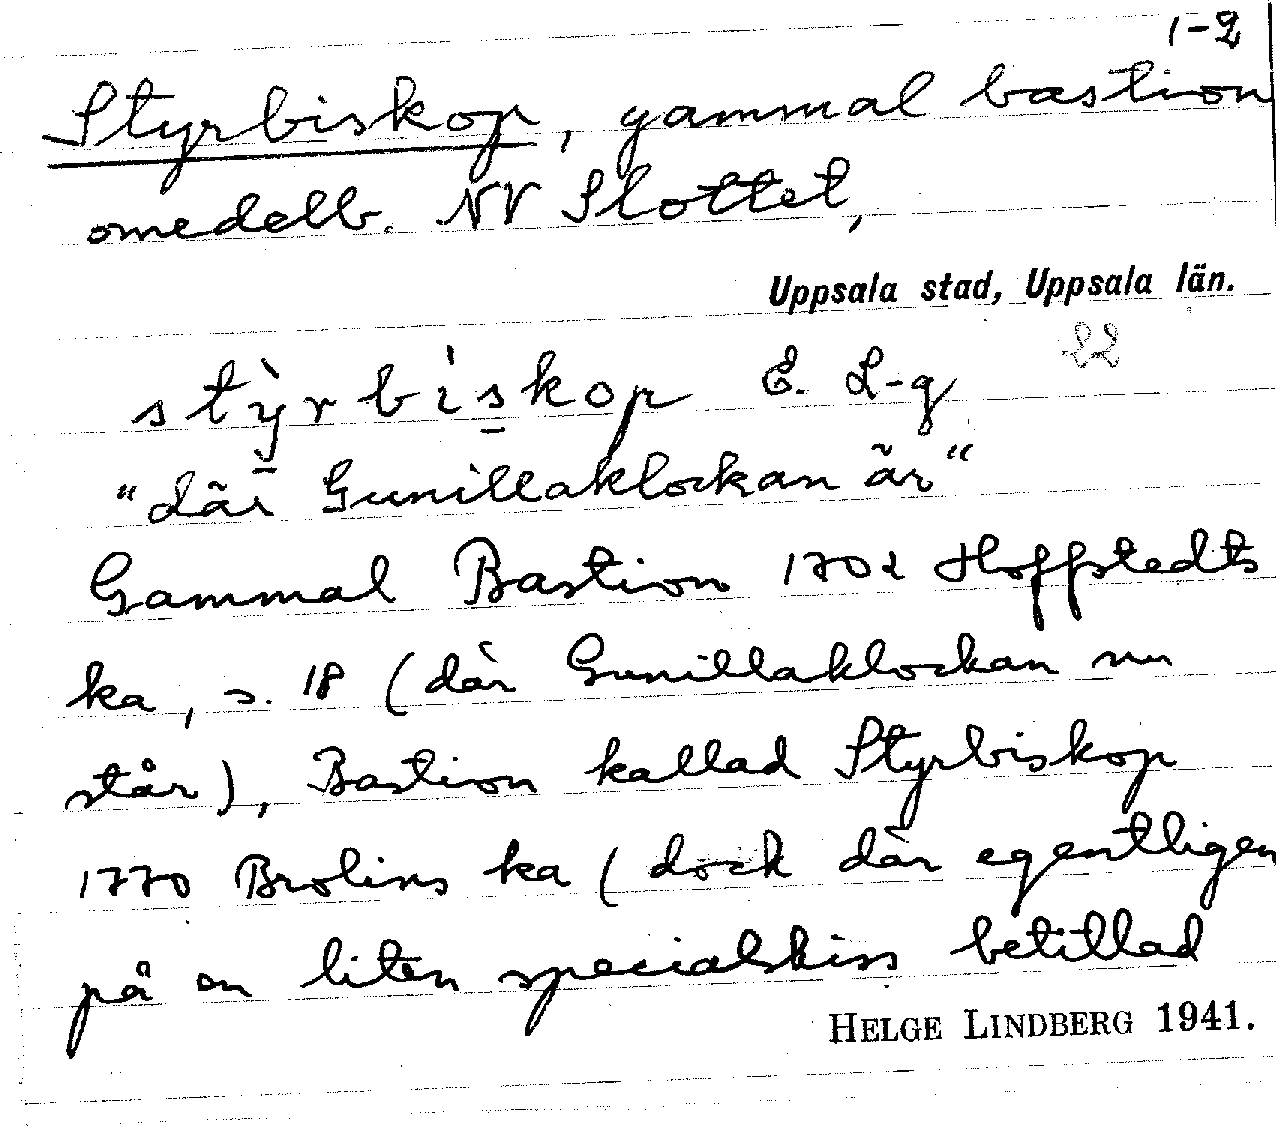 1-2
Styrbiskop, gammal bastion
omedelb. NV Slottet,
Uppsala stad, Uppsala län.
22
stỳrbìskop E. L-g
"där Gunillaklockan är"
Gammal Bastion 1702 Hoffstedts
ka, s. 18 (där Gunillaklockan nu
står), Bastion kallad Styrbiskop
1770 Brolins ka (dock där egentligen
på en liten specialskiss betitlad
HELGE LINDBERG 1941.